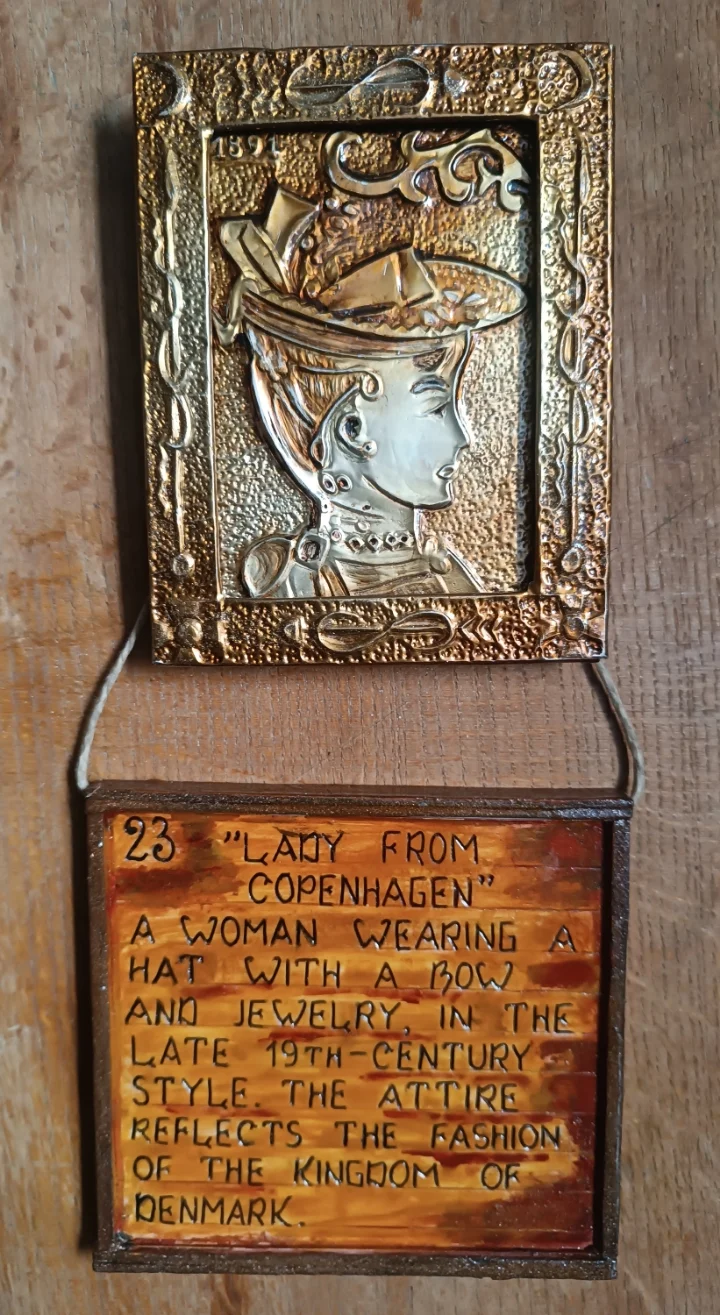 1891
23 "LADY FROM
COPENHAGEN"
A WOMAN WEARING A
HAT WITH A BOW
AND JEWELRY, IN THE
LATE 19TH-CENTURY
STYLE. THE ATTIRE
REFLECTS THE FASHION
OF THE KINGDOM OF
DENMARK.